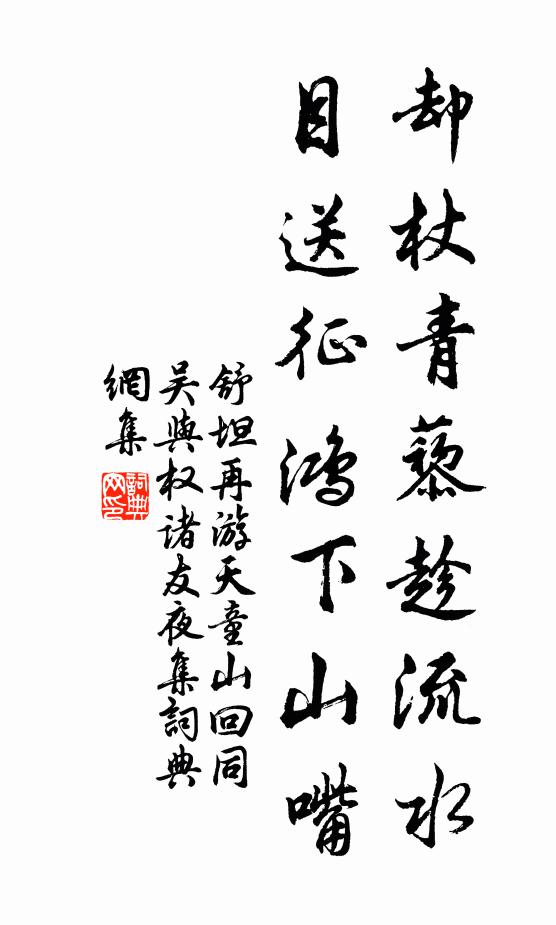 却杖青藜趁流水
目送征鸿下山嘴
舒坦再游天童山回同
吴與权诸友夜集詞典
網集
詞典
网印